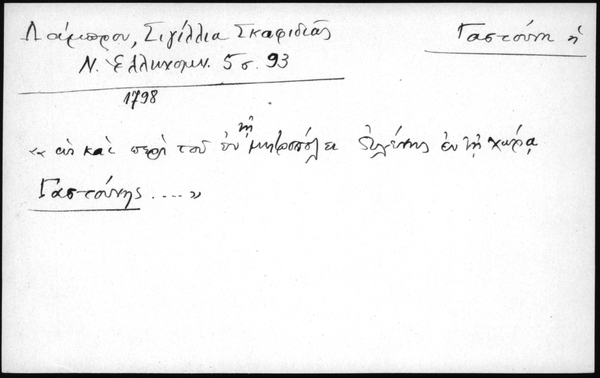 Λάμπρου, Σιγίλλια Σκαφιδιᾶς
Ν. Ἑλληνομν. 5 σ. 93
Γαστούνη ἡ
1798
«ὡς καὶ περὶ τοῦ ἐν τῇ μητροπόλει Ὠλένης ἐν τῇ χώρᾳ
Γαστούνης ....»